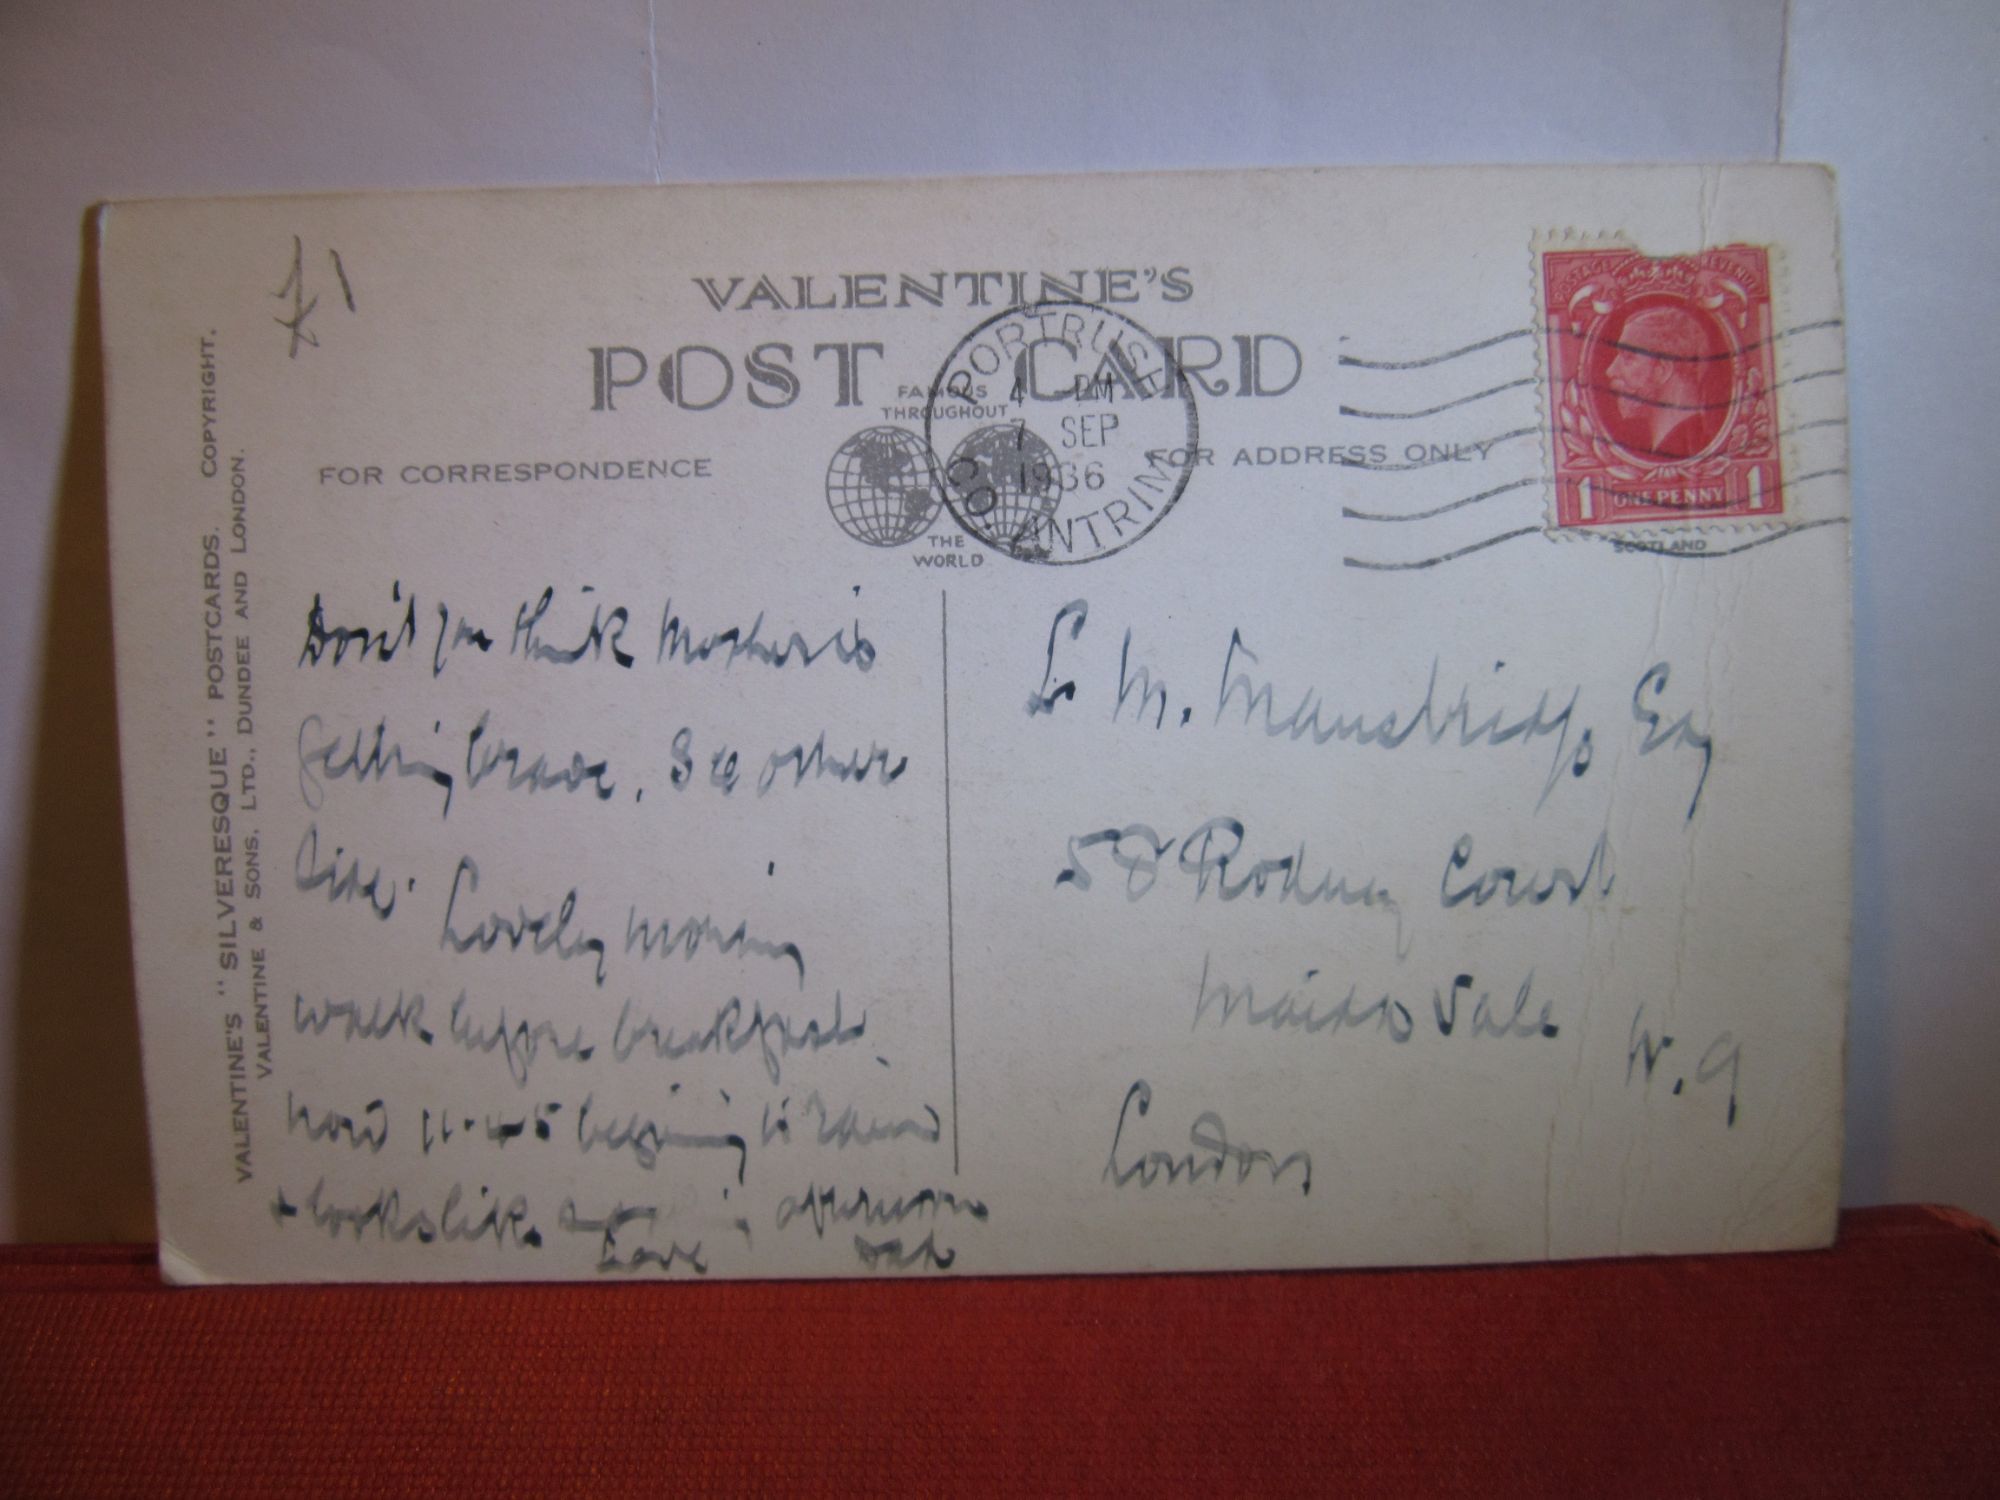 £1
VALENTINE'S
POST CARD
FAMOUS
THROUGHOUT
THE
WORLD
FOR CORRESPONDENCE
FOR ADDRESS ONLY
PORTRUSH
4 PM
7 SEP
1936
CO. ANTRIM
POSTAGE REVENUE
1 ONE PENNY 1
SCOTLAND
VALENTINE'S "SILVERESQUE" POSTCARDS. COPYRIGHT.
VALENTINE & SONS, LTD., DUNDEE AND LONDON.
Don't you think Mother is
getting brave. See other
side. Lovely morning
walk before breakfast
now 11.45 beginning to rain
+ looks like afternoon
Love Dad
L M. Mansbridge Esq
58 Rodney Court
Maida Vale
W.9
London